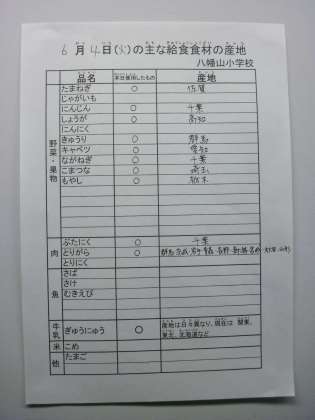 6月4日(火)の主な給食食材の産地
八幡山小学校
品名 本日使用したもの 産地
野菜・果物
たまねぎ ○ 佐賀
じゃがいも
にんじん ○ 千葉
しょうが ○ 高知
にんにく
きゅうり ○ 群馬
キャベツ ○ 愛知
ながねぎ ○ 千葉
こまつな ○ 埼玉
もやし ○ 栃木
肉
ぶたにく ○ 千葉
とりがら ○ 群馬
とりにく
魚
さば
さけ
むきえび
牛乳 ぎゅうにゅう ○ 産地は日々異なり、現在は 関東、
東北、北海道など
米 こめ
他 たまご